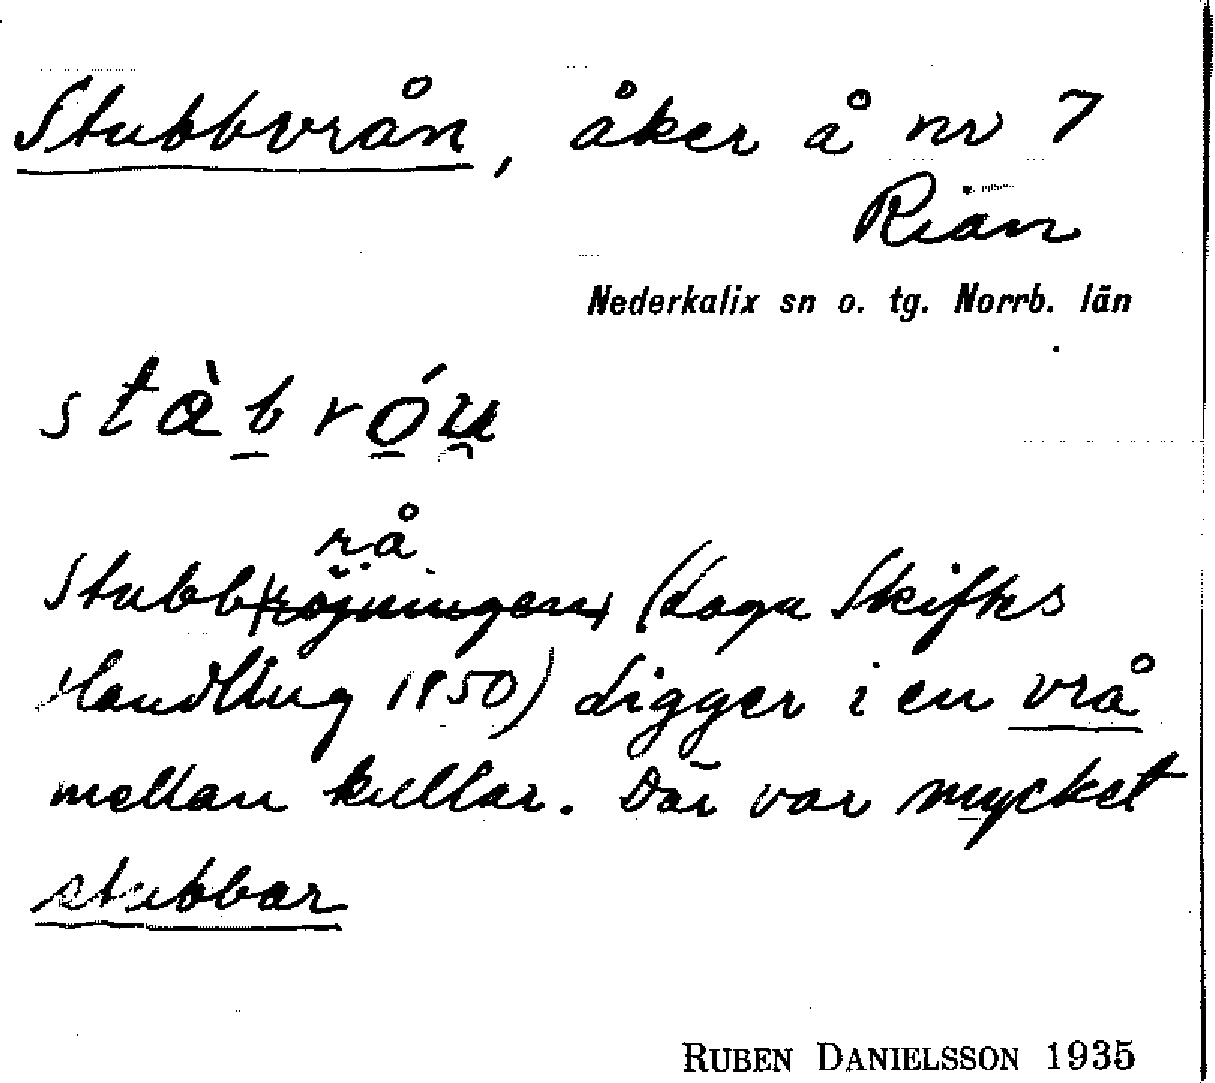 Stubbvrån, åker å nr 7
Riän
Nederkalix sn o. tg. Norrb. län
stàbróu̯
rå
Stubbröjningen (Laga Skiftes
Handling 1850) Ligger i en vrå
mellan kullar. Där var mycket
stubbar
RUBEN DANIELSSON 1935